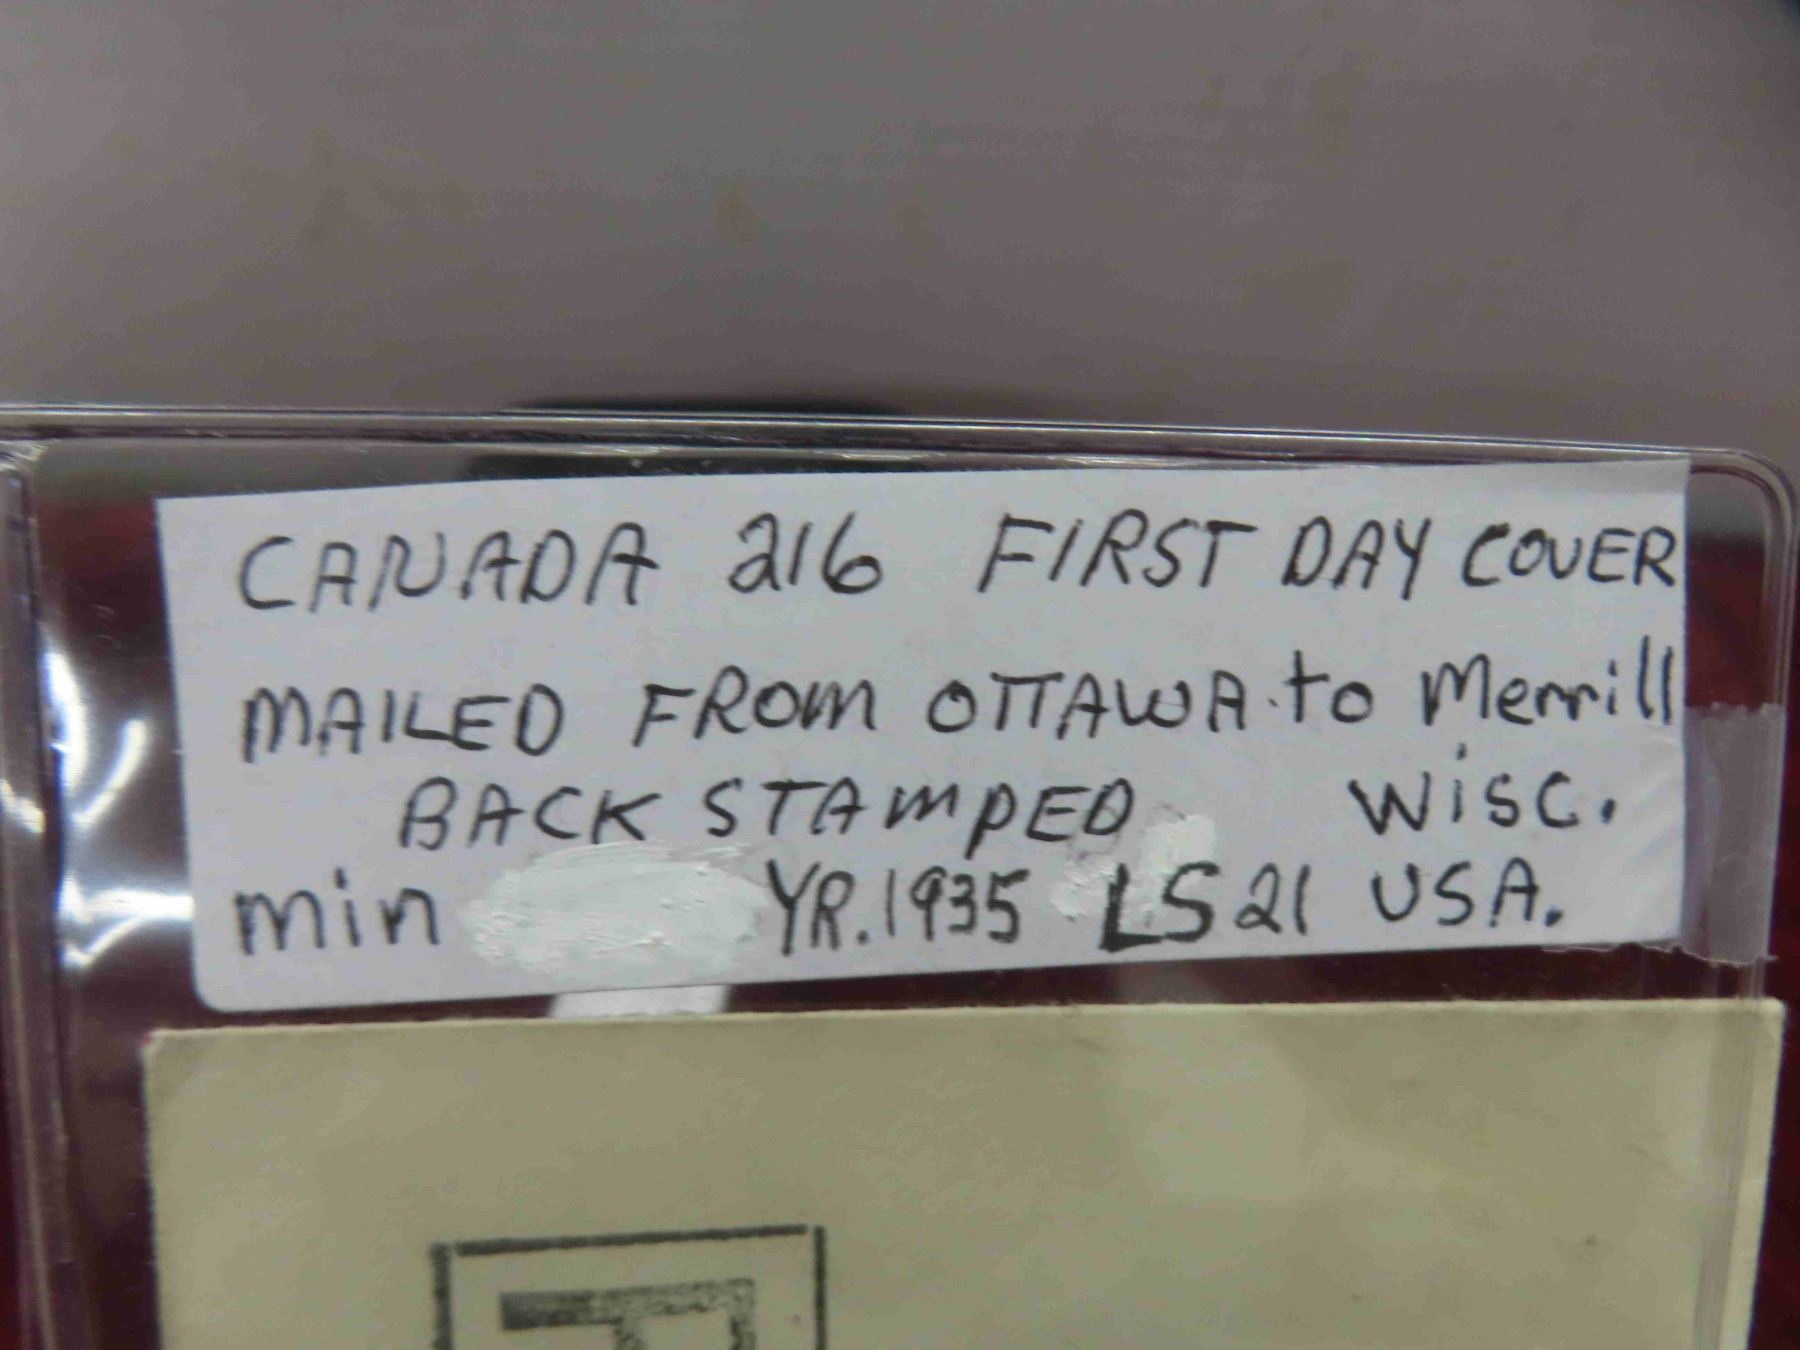 CANADA 216 FIRST DAY COVER
MAILED FROM OTTAWA to Merrill
BACK STAMPED WISC.
min YR. 1935 LS 21 USA.